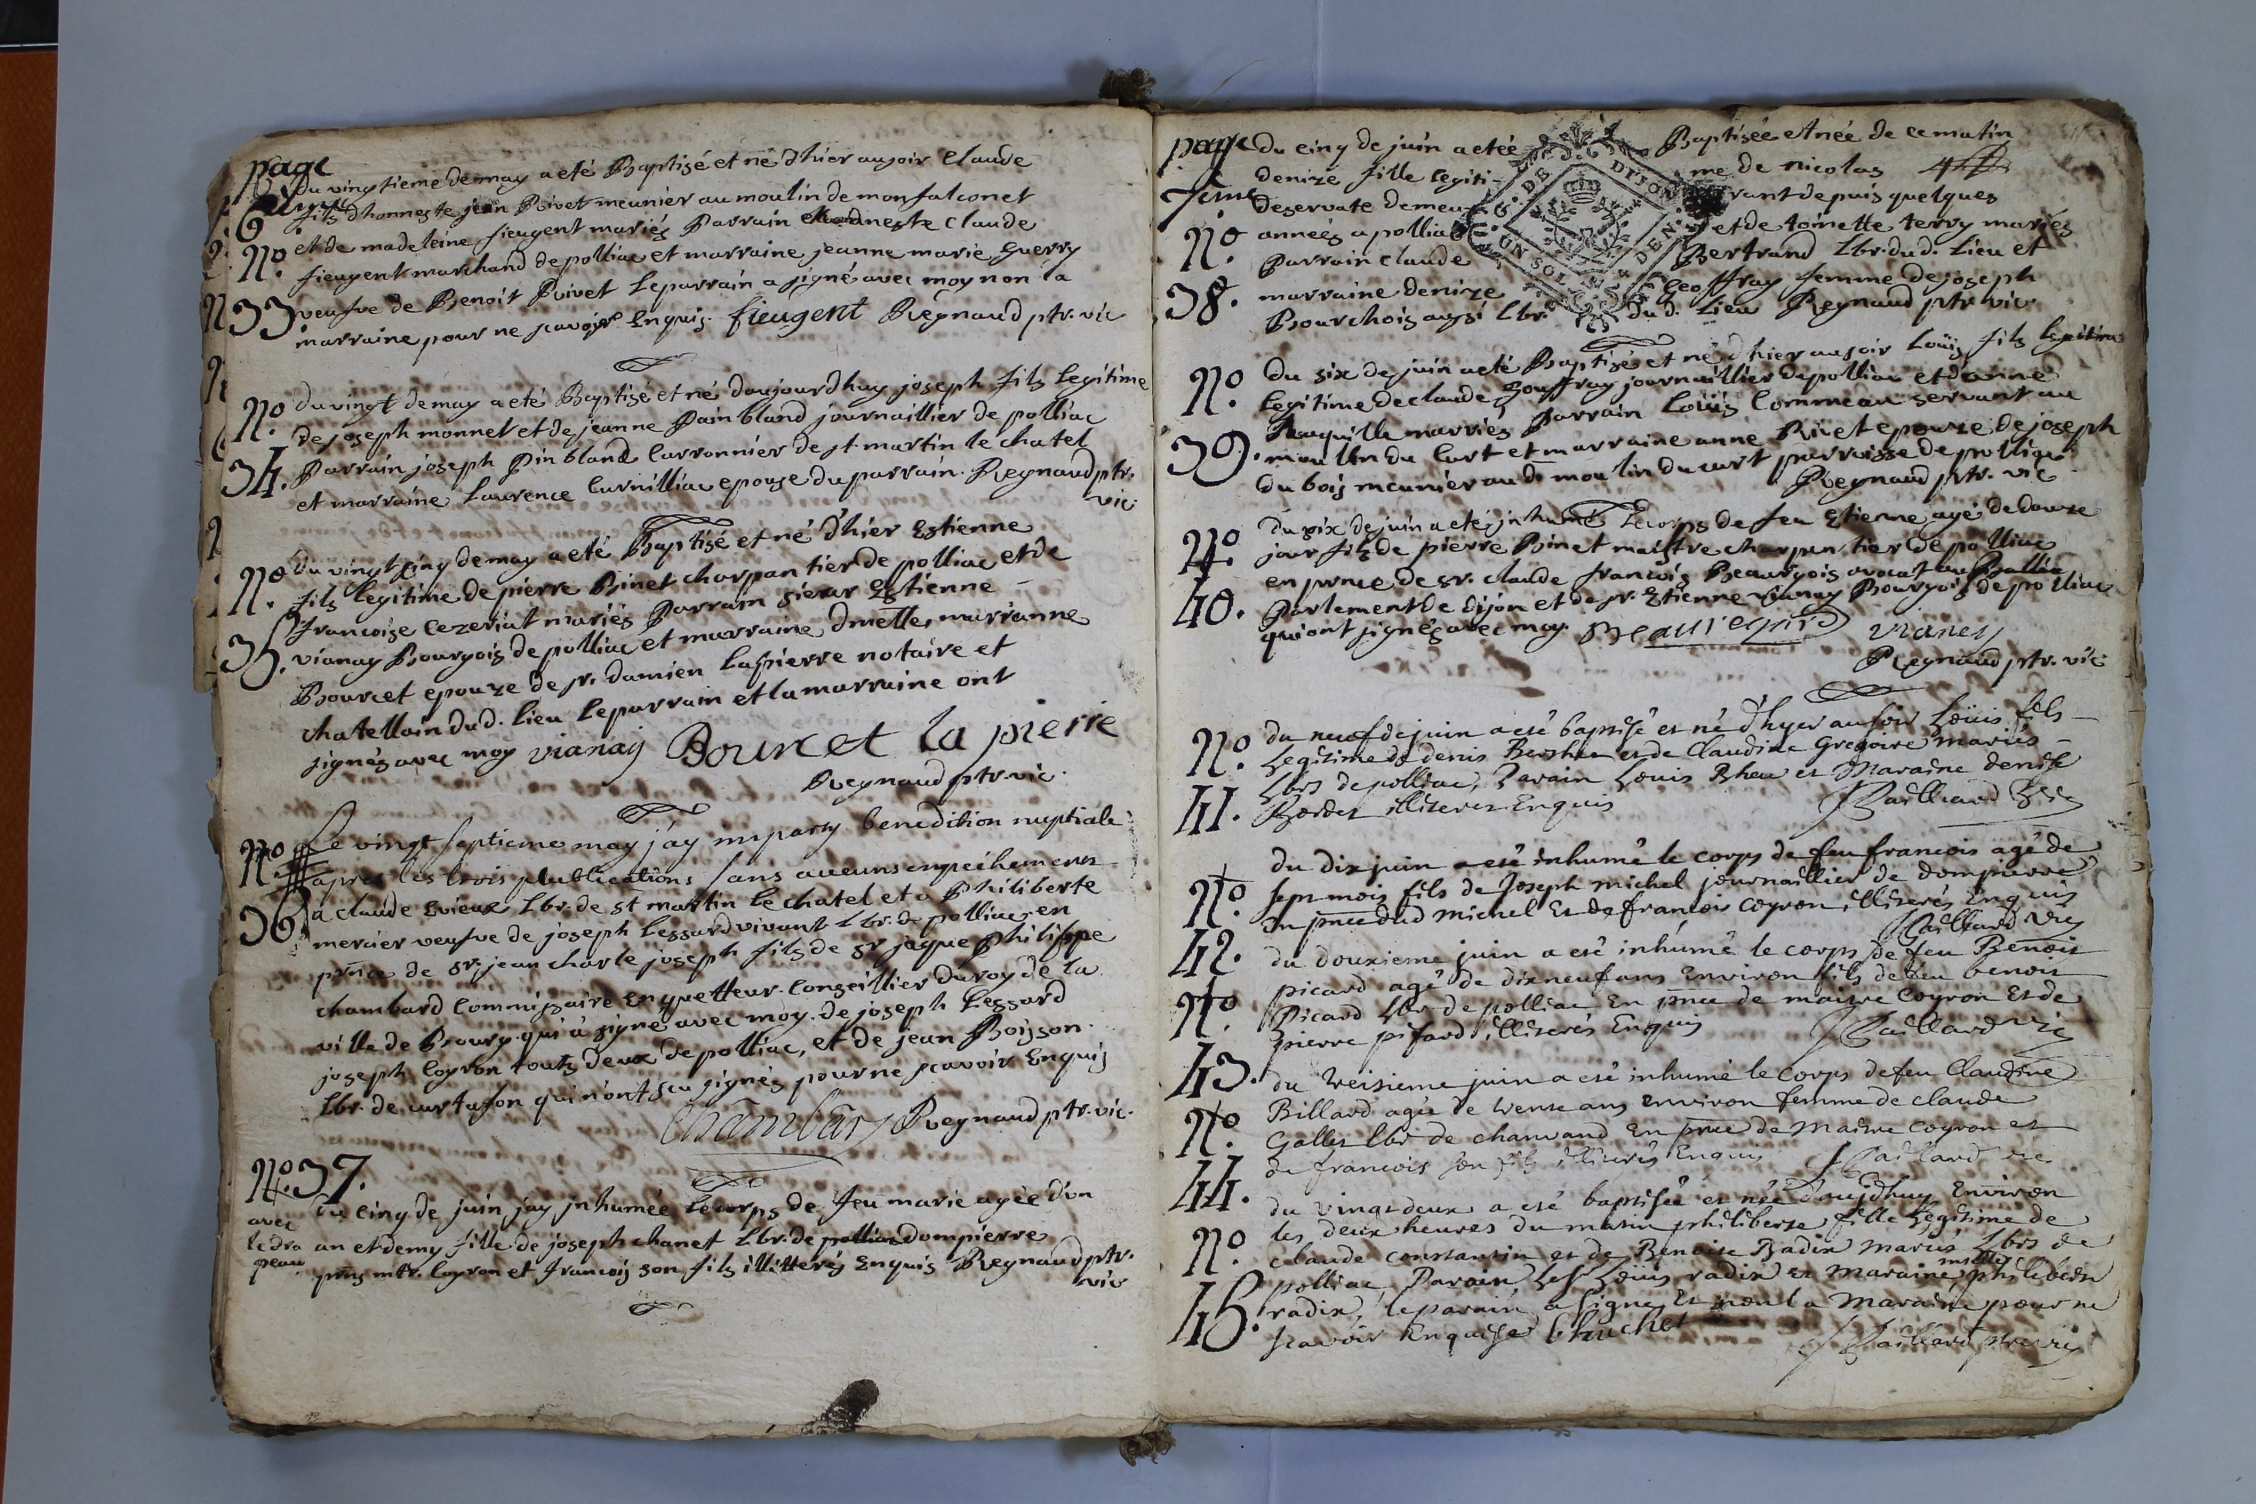 page
6eme
du vingtieme de may a eté Baptisé et né d'hier au soir Claude
fils d'honneste jean Rivet meunier au moulin de monfalconet
et de madeleine fieugent mariés Parrain honneste Claude
No. fieugent marchand de polliac et marraine jeanne marie Guerry
33. veufve de Benoit Rivet le parrain a signé avec moy non la
marraine pour ne scavoir Enquis. fieugent Reynaud ptr. vic
No. du vingt de may a eté Baptisé et né d'aujourd'huy joseph fils legitime
de joseph monnet et de jeanne Painbland journaillier de polliac
34. Parrain joseph Pinbland Carronnier de st martin le chatel
et marraine Laurence Curnilliac epouse du parrain. Reynaud ptr.
vic.
du vingt cinq de may a eté Baptisé et né d'hier Estienne
No. fils legitime de pierre Binet charpantier de polliac et de
francoise cezeriat mariés Parrain sieur Estienne
35. vianay Bourgois de polliac et marraine dmelle. marianne
Bourcet epouze de sr. damien Lapierre notaire et
chatellain dud. lieu le parrain et la marraine ont
signés avec moy vianay Bourcet la pierre
Reynaud ptr. vic.
No. Le vingt septieme may j'ay imparty benedition nuptiale
apres les trois plublications sans aucuns enpechement
36. a claude Evieux Lbr. de st martin le chatel et a Philiberte
mercier veufve de joseph Lessard vivant Lbr. de polliac en
prnce de sr. jean charle joseph fils de sr jaque philippe
chambard Commissaire Enquetteur Conseillier du roy de la
ville de Bourg. qui a signé avec moy. de joseph Lessard
joseph Coyron touts deux de polliac, et de jean Boisson
Lbr. de curtafon qui n'ont scu signés pour ne scavoir Enquis
Chambard Reynaud ptr. vic.
No. 37.
du cinq de juin jay jnhumée le corps de feu marie agée d'un
avec
le dra
peau
an et demy fille de joseph chanet Lbr. de polliac dompierre
pns mtr. Coyron et francois son fils illitterés Enquis Reynaud ptr.
vic
page
7eme
du cinq de juin a etée Baptisée et née de ce matin
denize fille legitime de nicolas
deservate demeurant depuis quelques
No. années a polliac et de toinette terry mariés
Parrain claude Bertrand Lbr. dud. lieu et
38. marraine denize Geoffray femme de joseph
Bourchois aussi Lbr. dud. lieu Reynaud ptr. vic.
DE DIJON
UN SOL
DEN.
du six de juin a eté Baptisé et né d'hier au soir Loüis fils legitime
No. legitime de claude Gouffray journaillier de polliac et d'anne
marriés Parrain Loüis Commeau servant au
39. moullin du Curt et marraine anne Rivet epouze de joseph
dubois meunier aud. moulin du curt parroisse de polliac
Reynaud ptr. vic
No. du six de juin a eté jnhumé le corps de feu Etienne agé de douze
jour fils de pierre Binet maistre charpantier de polliac
en prnce de sr. claude francois Beauregois avocat au
40. Parlement de dijon et de sr. Etienne vianay Bourgois de polliac
qui ont signés avec moy. vianey
Reynaud ptr. vic.
du neuf de juin a esté baptisé et né d'hyer au soir Loüis fils
No. Legitime de denis et de Claudine Gregoire mariés
Lbrs de polliac, Parain Louis Rheu et Maraine denise
41. Bordet illiterez Enquis JBailliard vic
du dix juin a esté inhumé le corps de feu francois agé de
No. sept mois fils de Joseph michel journaillier de dompierre
en pnce dud michel et de francois coyron, illiterés Enquis
42. JBailliard vic
du douxieme juin a esté inhumé le corps de feu Benoit
picard agé de dixneuf ans Environ fils de feu benoit
No. Picard Lbr. de polliac En pnce de maitre Coyron et de
pierre pifard, illiterés Enquis JBaillard vic
43. du treisieme juin a esté inhumé le corps de feu Claudine
Billard agée de trente ans Environ femme de claude
No. Gallet Lbr de chanvand En pnce de Maitre Coyron et
de francois son fils illiterés Enquis JBaillard vic
44. du vingt deux a esté baptisée et née d'aujd'huy Environ
les deux heures du matin philiberte fille Legitime de
No. claude constantin et de Benoite Radix mariés Lbrs de
polliac, Parain Loüis radix et maraine philiberte
45. radix, le parain a signé Et non la maraine pour ne
scavoir Enquise JBaillard ptre vic